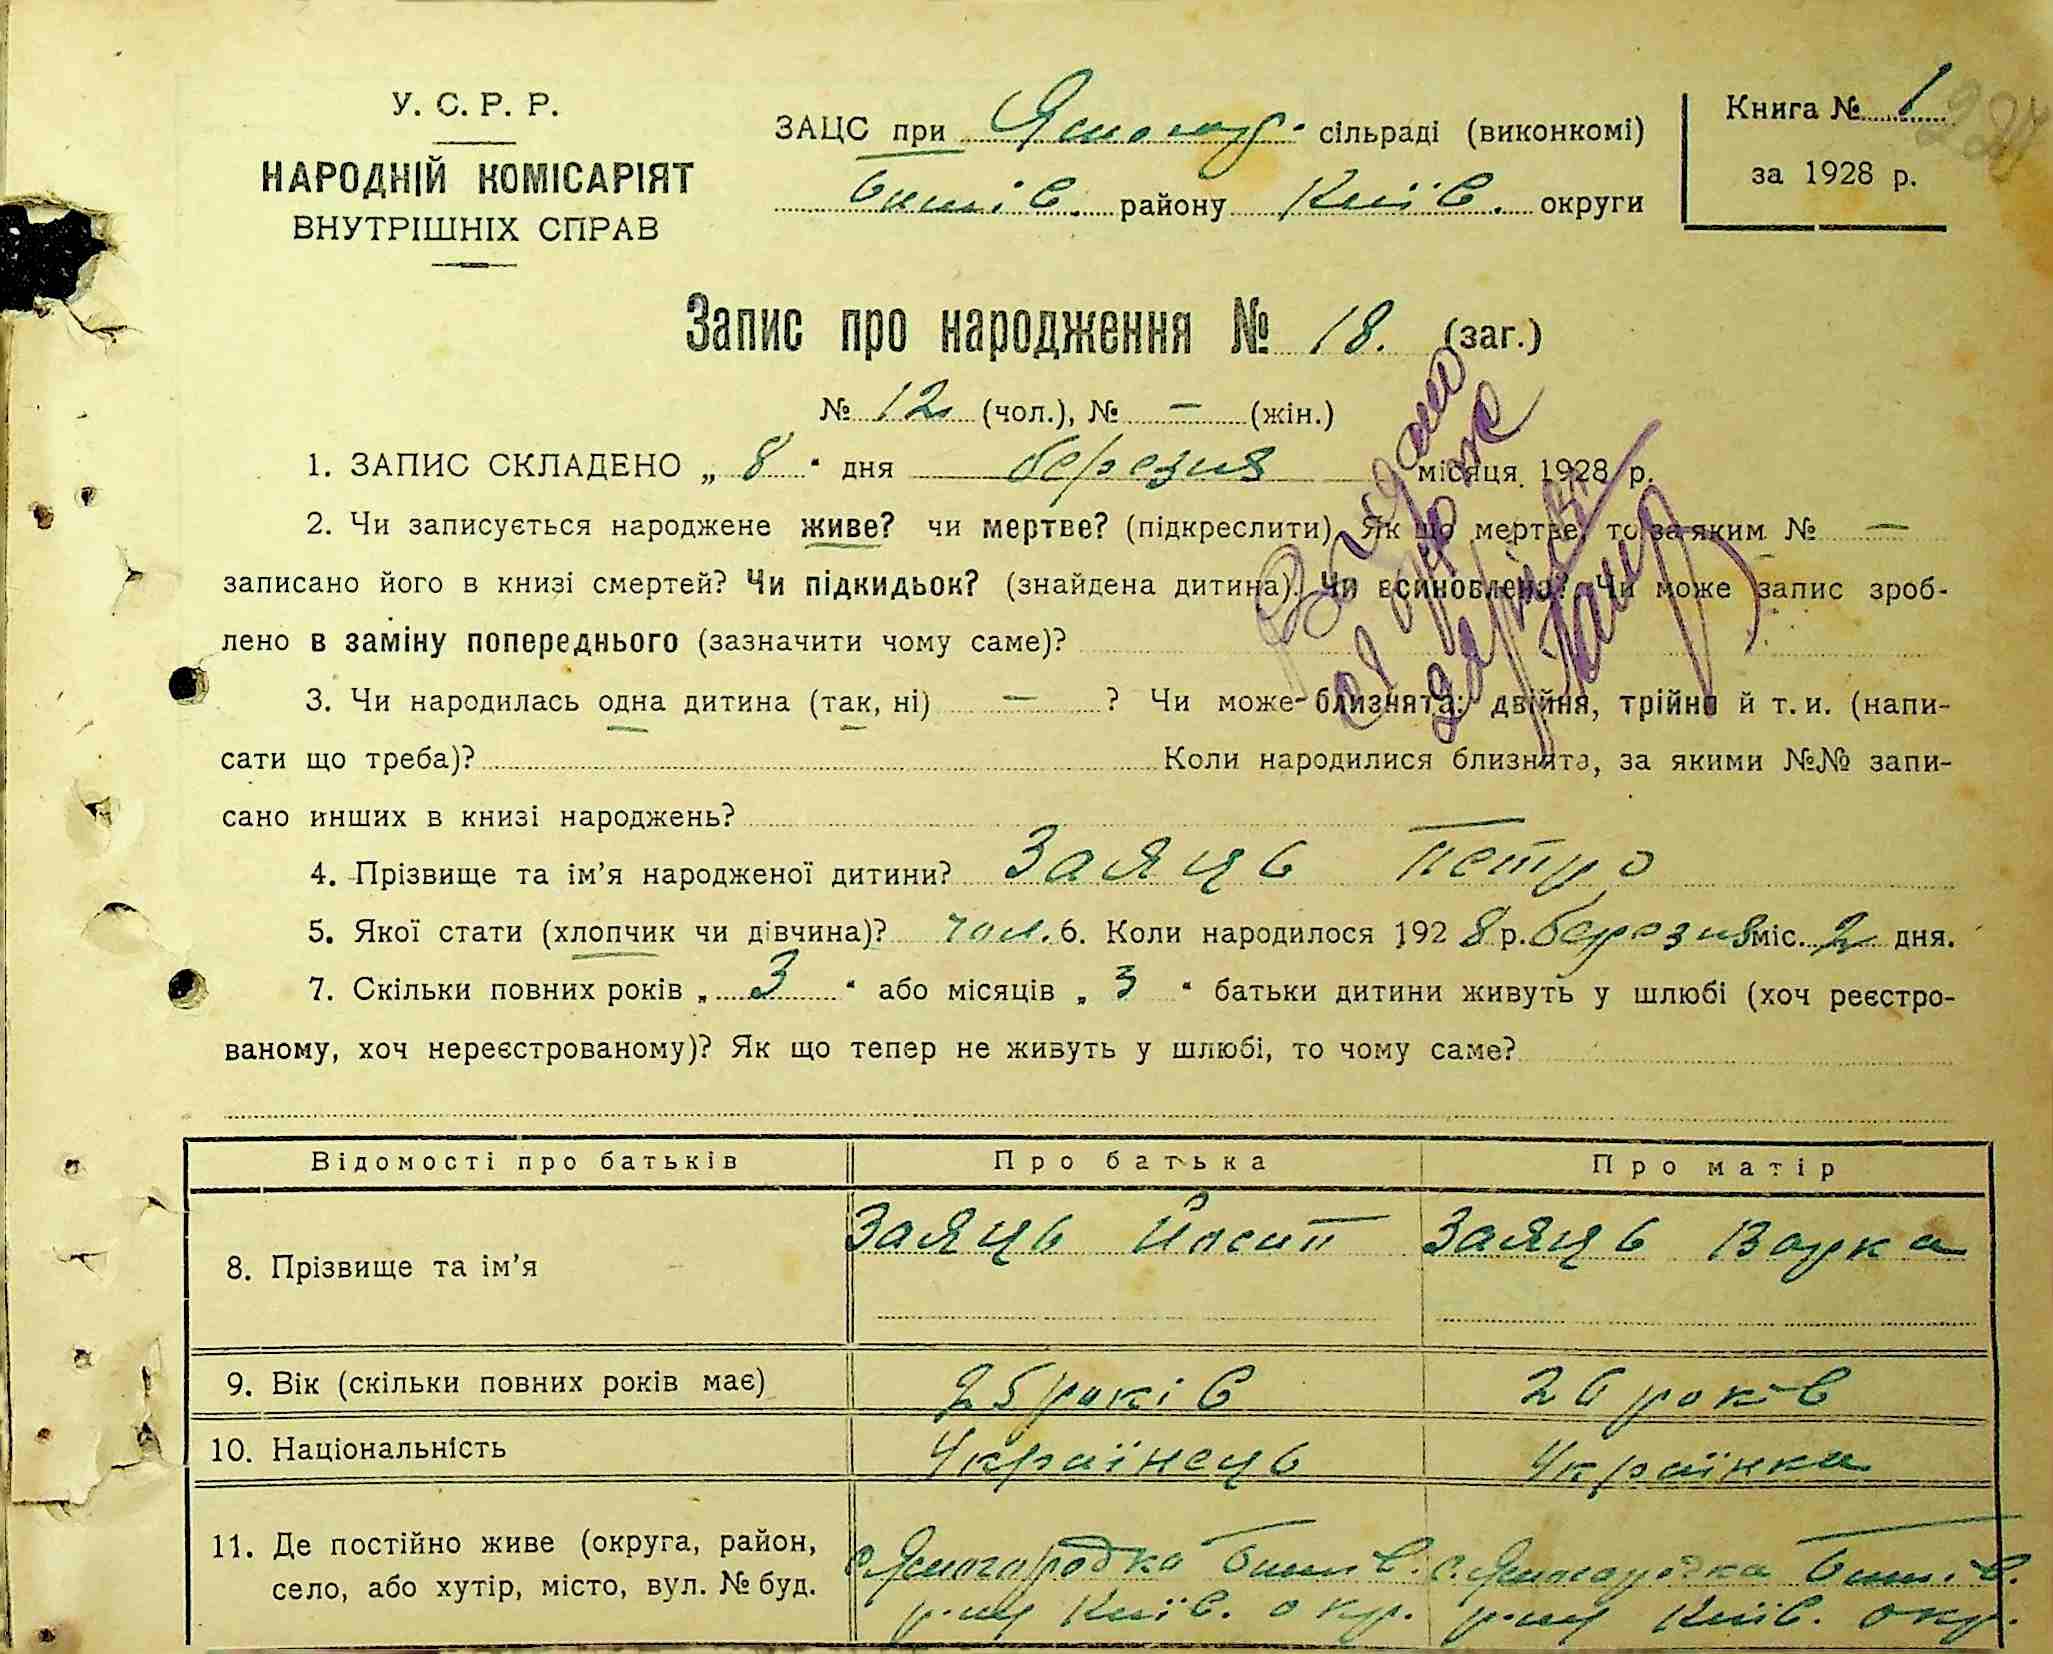 У. С. Р. Р.
НАРОДНІЙ КОМІСАРІЯТ
ВНУТРІШНІХ СПРАВ
ЗАЦС при Ясногород. сільраді (виконкомі)
Бишів. району Київ. округи
Книга № 1
за 1928 р.
Запис про народження № 18. (заг.)
№ 12 (чол.), № — (жін.)
1. ЗАПИС СКЛАДЕНО „ 8 “ дня березня місяця 1928 р.
2. Чи записується народжене живе? чи мертве? (підкреслити). Як що мертве, то за яким № —
записано його в книзі смертей? Чи підкидьок? (знайдена дитина). Чи всиновлена? Чи може запис зроб-
лено в заміну попереднього (зазначити чому саме)?
3. Чи народилась одна дитина (так, ні) — ? Чи може близнята: двійня, трійня й т. и. (напи-
сати що треба)? Коли народилися близнята, за якими №№ запи-
сано инших в книзі народжень?
4. Прізвище та ім'я народженої дитини? Заяць Петро
5. Якої стати (хлопчик чи дівчина)? чол. 6. Коли народилося 1928 р. березня міс. 2 дня.
7. Скільки повних років „ 3 “ або місяців „ 3 “ батьки дитини живуть у шлюбі (хоч реєстро-
ваному, хоч нереєстрованому)? Як що тепер не живуть у шлюбі, то чому саме?
Відомості про батьків Про батька Про матір
8. Прізвище та ім'я Заяць Йосип Заяць Варка
9. Вік (скільки повних років має) 25 років 26 років
10. Національність Українець Українка
11. Де постійно живе (округа, район,
село, або хутір, місто, вул. № буд.
с. Ясногородка Бишів.
р-ну Київ. окр.
с. Ясногородка Бишів.
р-ну Київ. окр.